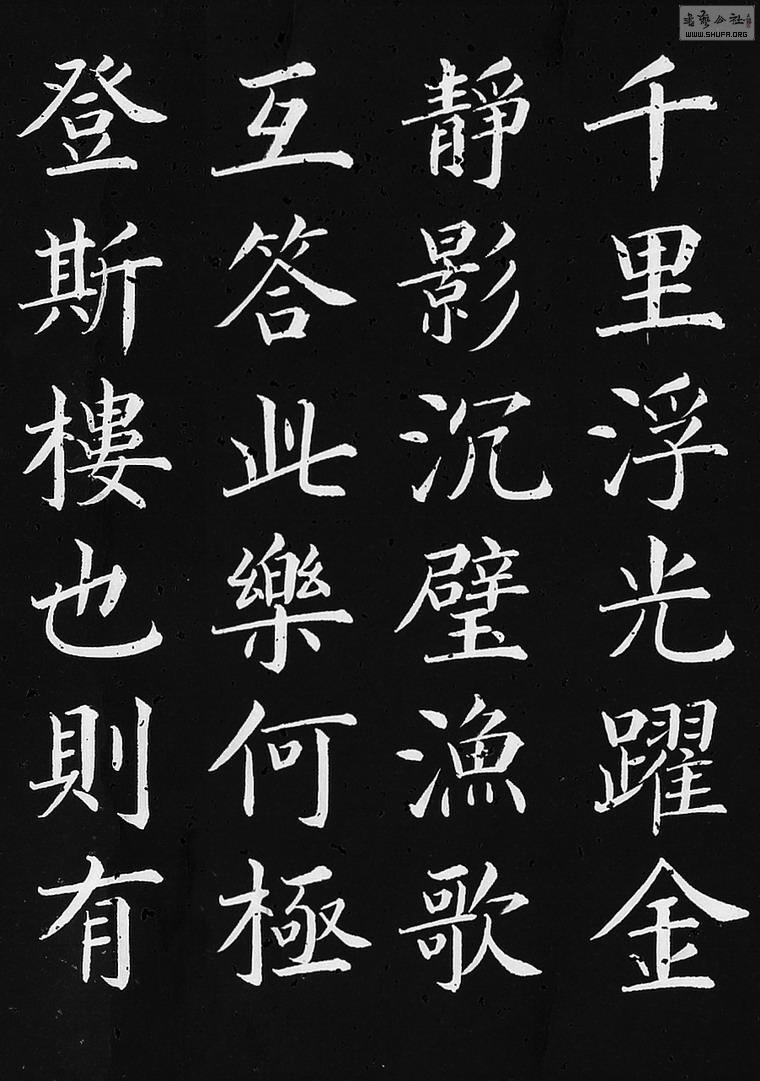 千里浮光躍金
靜影沉璧漁歌
互答此樂何極
登斯樓也則有
WWW.SHUFA.ORG